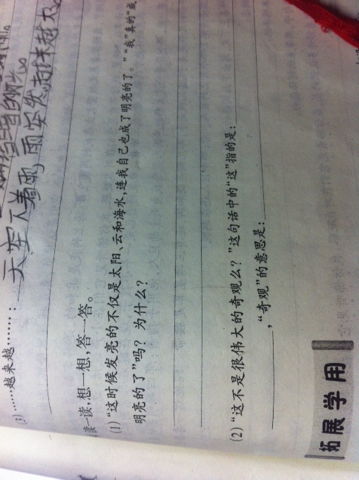 3) ……越来越……：天空下着雨，雨突然越来越大。
读一读，想一想，答一答。
(1)“这时候发亮的不仅是太阳、云和海水，连我自己也成了明亮的了。”“我”真的“成
明亮的了”吗？为什么？
(2)“这不是很伟大的奇观么？”这句话中的“这”指的是：
，“奇观”的意思是：
拓展学用